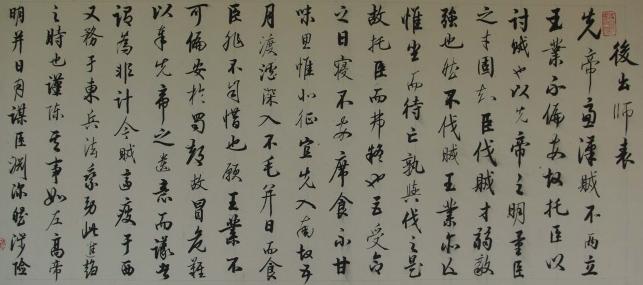 後出師表
先帝慮漢賊不兩立
王業不偏安故托臣以
討賊也以先帝之明量臣
之才固知臣伐賊才弱敵
強也然不伐賊王業亦亡
惟坐而待亡孰與伐之是
故托臣而弗疑也臣受命
之日寢不安席食不甘
味思惟北征宜先入南故五
月渡瀘深入不毛并日而食
臣非不自惜也顧王業不
可偏安於蜀都故冒危難
以奉先帝之遺意而議者
謂為非計今賊適疲于西
又務于東兵法乘勞此進趨
之時也謹陳其事如左高帝
明并日月謀臣淵深然涉险